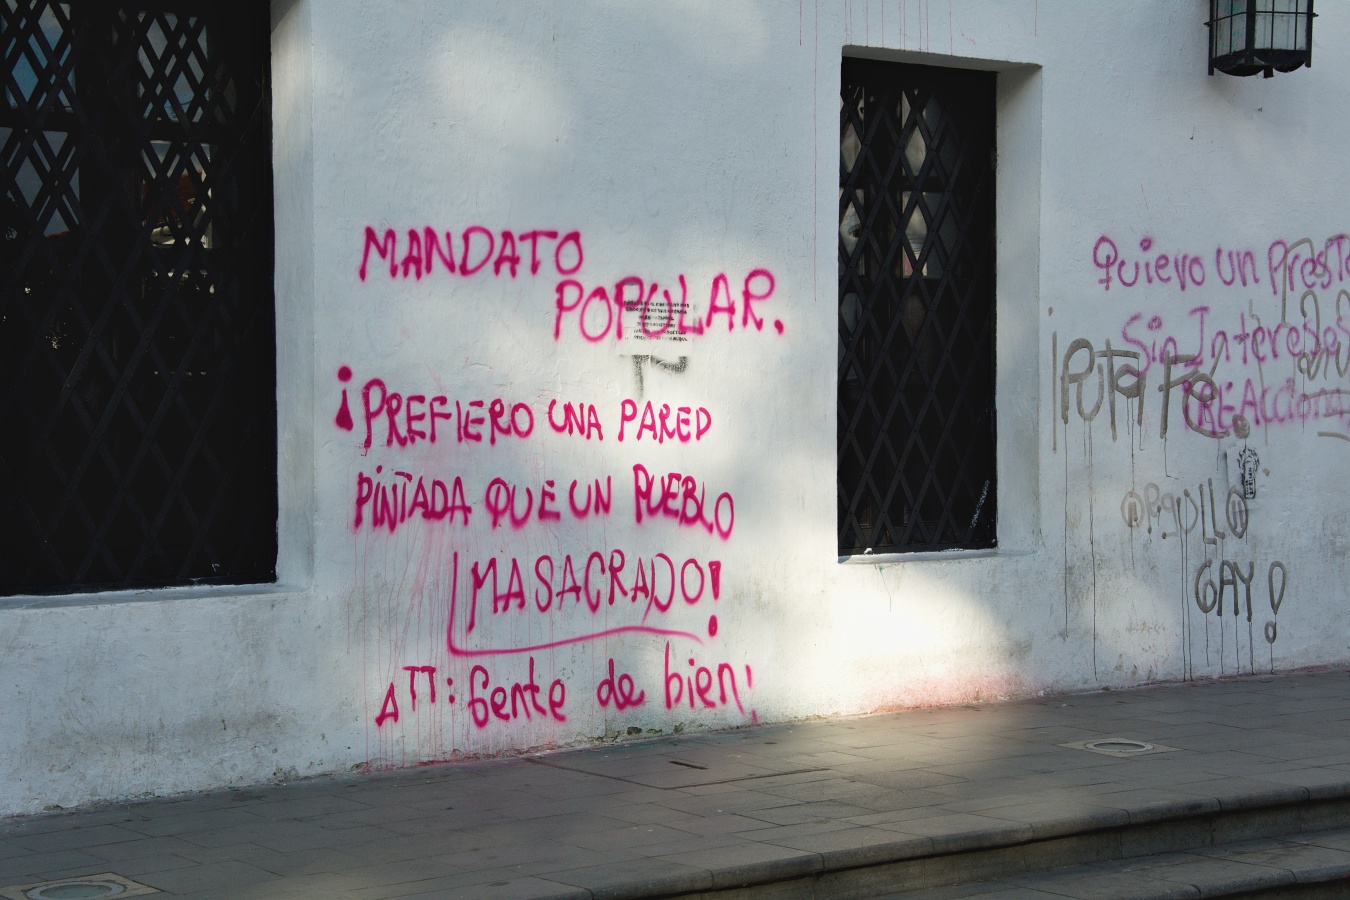 MANDATO
POPULAR.
¡PREFIERO UNA PARED
PINTADA QUE UN PUEBLO
MASACRADO!
ATT: Gente de bien!
Quiero un Prest
Sin Intereses
PUTA
ORGULLO
GAY!